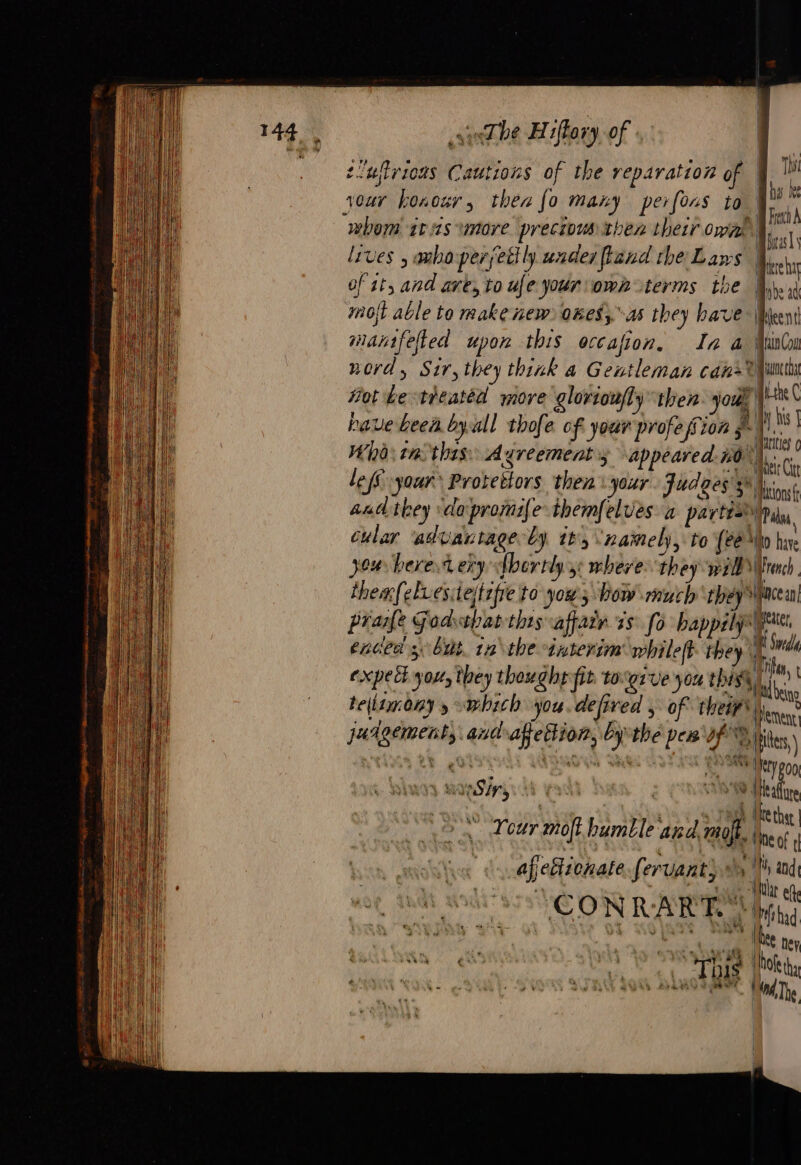 144 The Hiſtory of
luſtrious Cautions of the reparation of
your honour, then ſo many perſons to
whom it is more precious then their own
lives, who perfectly underſtand the Laws
of it, and are, to uſe your own terms the
moſt able to make new ones, as they have
manifeſted upon this occaſion. In a
word, Sir, they think a Gentleman can
not be treated more gloriouſly then you
have been by all thoſe of your profeſſion
Who in this Agreement, appeared no
leſſ your Protectors then your Judges
and they do promiſe themſelves a parti
cular advantage by it, namely, to ſee
you here very ſhortly; where they will
themſelves teſtifie to you, how much they
praiſe God that this affair is ſo happily
ended; but in the interim whileſt they
expect you, they thought fit to give you this
teſtimony, which you deſired, of their
judgement, and affection, by the pen of
Sir,
Your moſt humble and moſt
affectionate ſervant,
CONRART.
This